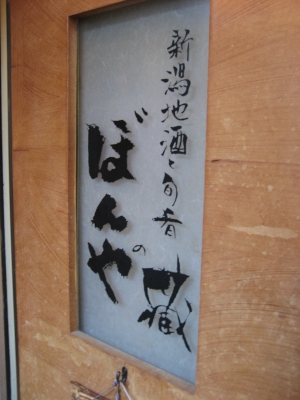 新潟地酒と旬肴
ぼんやの蔵